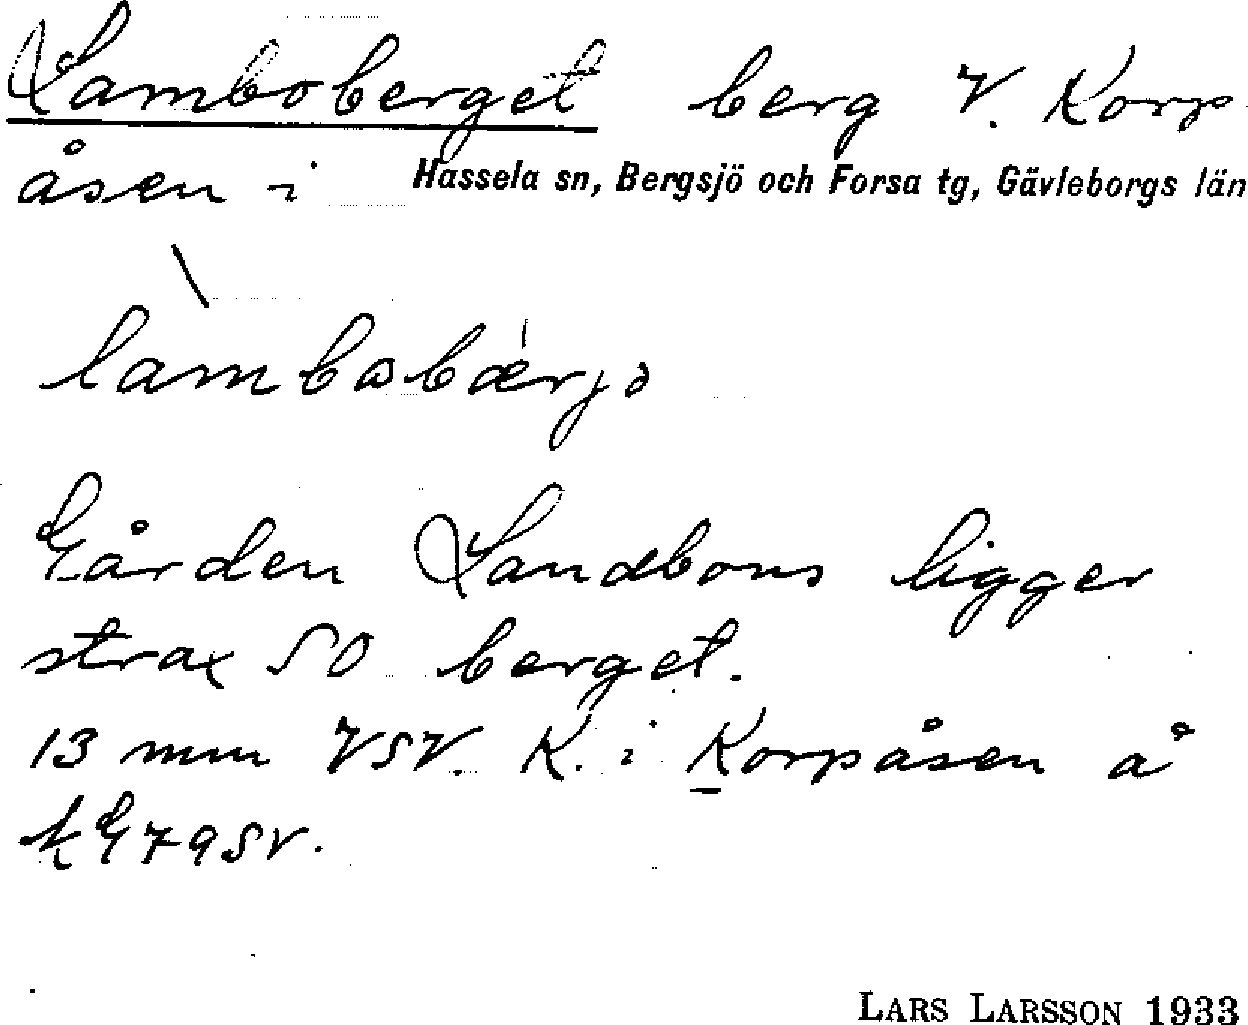 Lamboberget berg V. Korp-
åsen i Hassela sn, Bergsjö och Forsa tg, Gävleborgs län
Gården Landbons ligger
strax SO berget.
13 mm VSV. K. i Korpåsen å
79 SV.
LARS LARSSON 1933